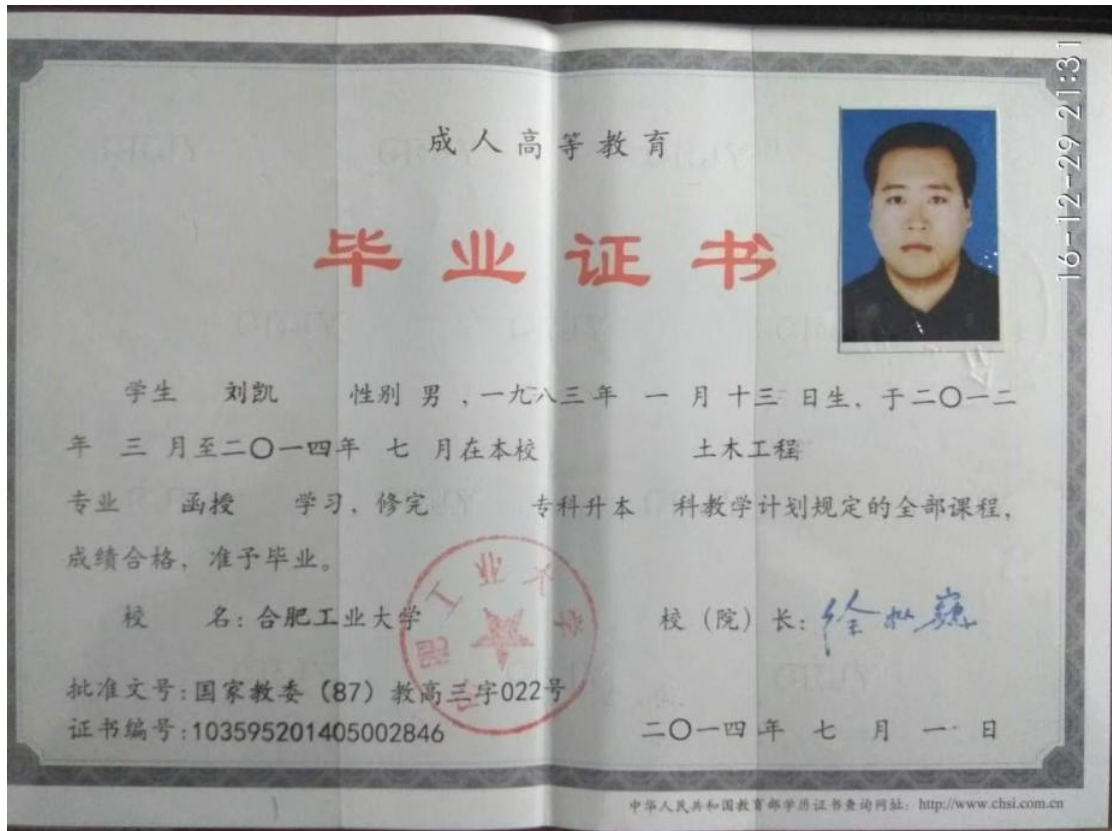 成人高等教育
毕业证书
16-12-29 21:31
学生 刘凯 性别 男 ，一九八三年 一 月 十三 日生，于二〇一二
年 三 月至二〇一四年 七 月在本校 土木工程
专业 函授 学习，修完 专科升本 科教学计划规定的全部课程，
成绩合格，准予毕业。
校 名：合肥工业大学 校（院）长：
合肥工业大学
批准文号：国家教委（87）教高三字022号
证书编号：103595201405002846 二〇一四年 七 月 一 日
中华人民共和国教育部学历证书查询网址：http://www.chsi.com.cn